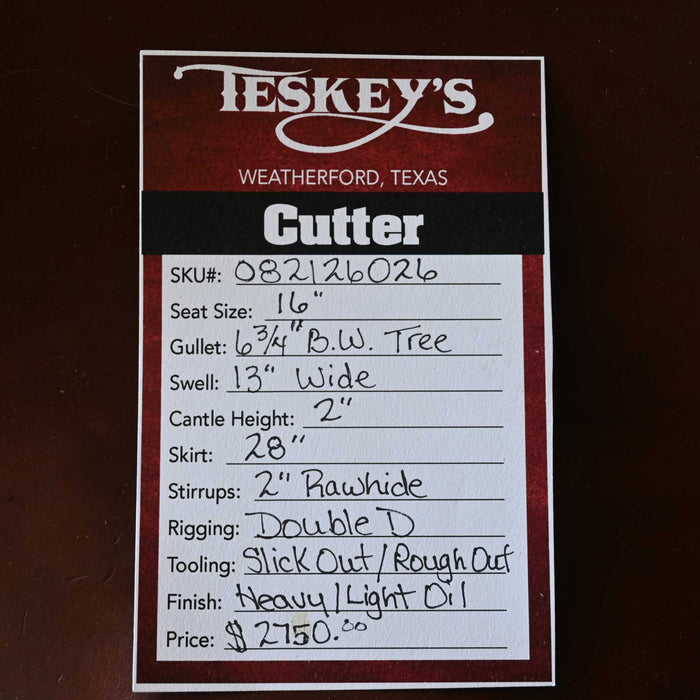 TESKEY'S
WEATHERFORD, TEXAS
Cutter
SKU#: 082126026
Seat Size: 16"
Gullet: 6 3/4" B.W. Tree
Swell: 13" Wide
Cantle Height: 2"
Skirt: 28"
Stirrups: 2" Rawhide
Rigging: Double D
Tooling: Slick Out / Rough Out
Finish: Heavy / Light Oil
Price: $2750.00